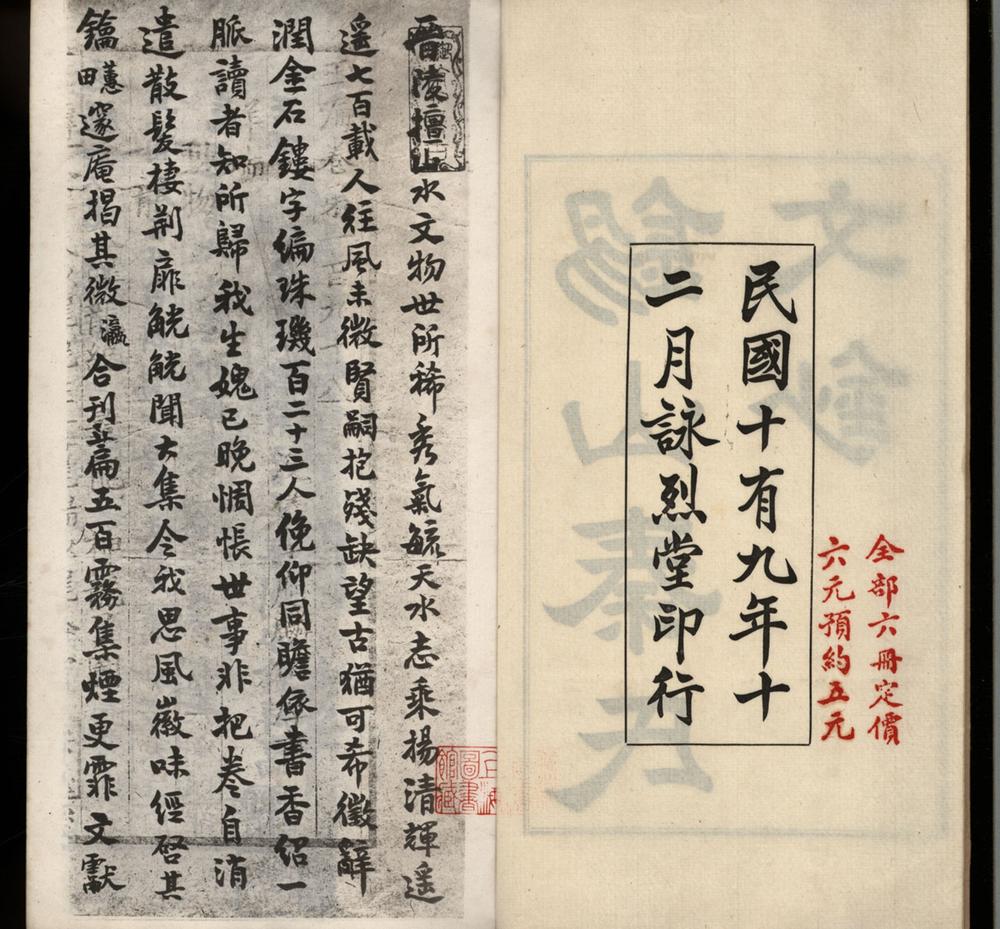 全部六冊定價
六元預約五元
民國十有九年十
二月詠烈堂印行
晉陵擅山水文物世所稀秀氣毓天水志乘揚清輝遥
遥七百載人往風未微賢嗣抱殘缺望古猶可希徽辭
潤金石鏤字編珠璣百二十三人俛仰同瞻依書香紹一
脈讀者知所歸我生媿已晚惆悵世事非把卷自消
遣散髮棲荆扉觥觥聞大集令我思風徽味經啓其
鑰蕙田邃庵揭其微瀛合刊五百霧集煙更霏文獻